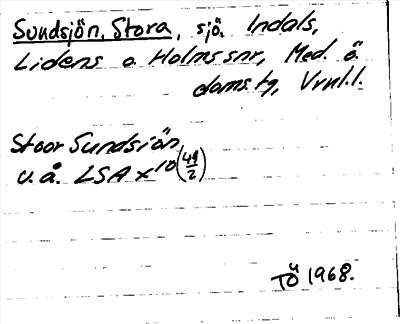 Sundsjön, Stora, sjö. Indals,
Lidens o. Holms snr, Med. ö.
doms. tg, Vrnl. l.
Stoor Sundsiön
u. å. LSA x 10 (49/2)
TÖ 1968.